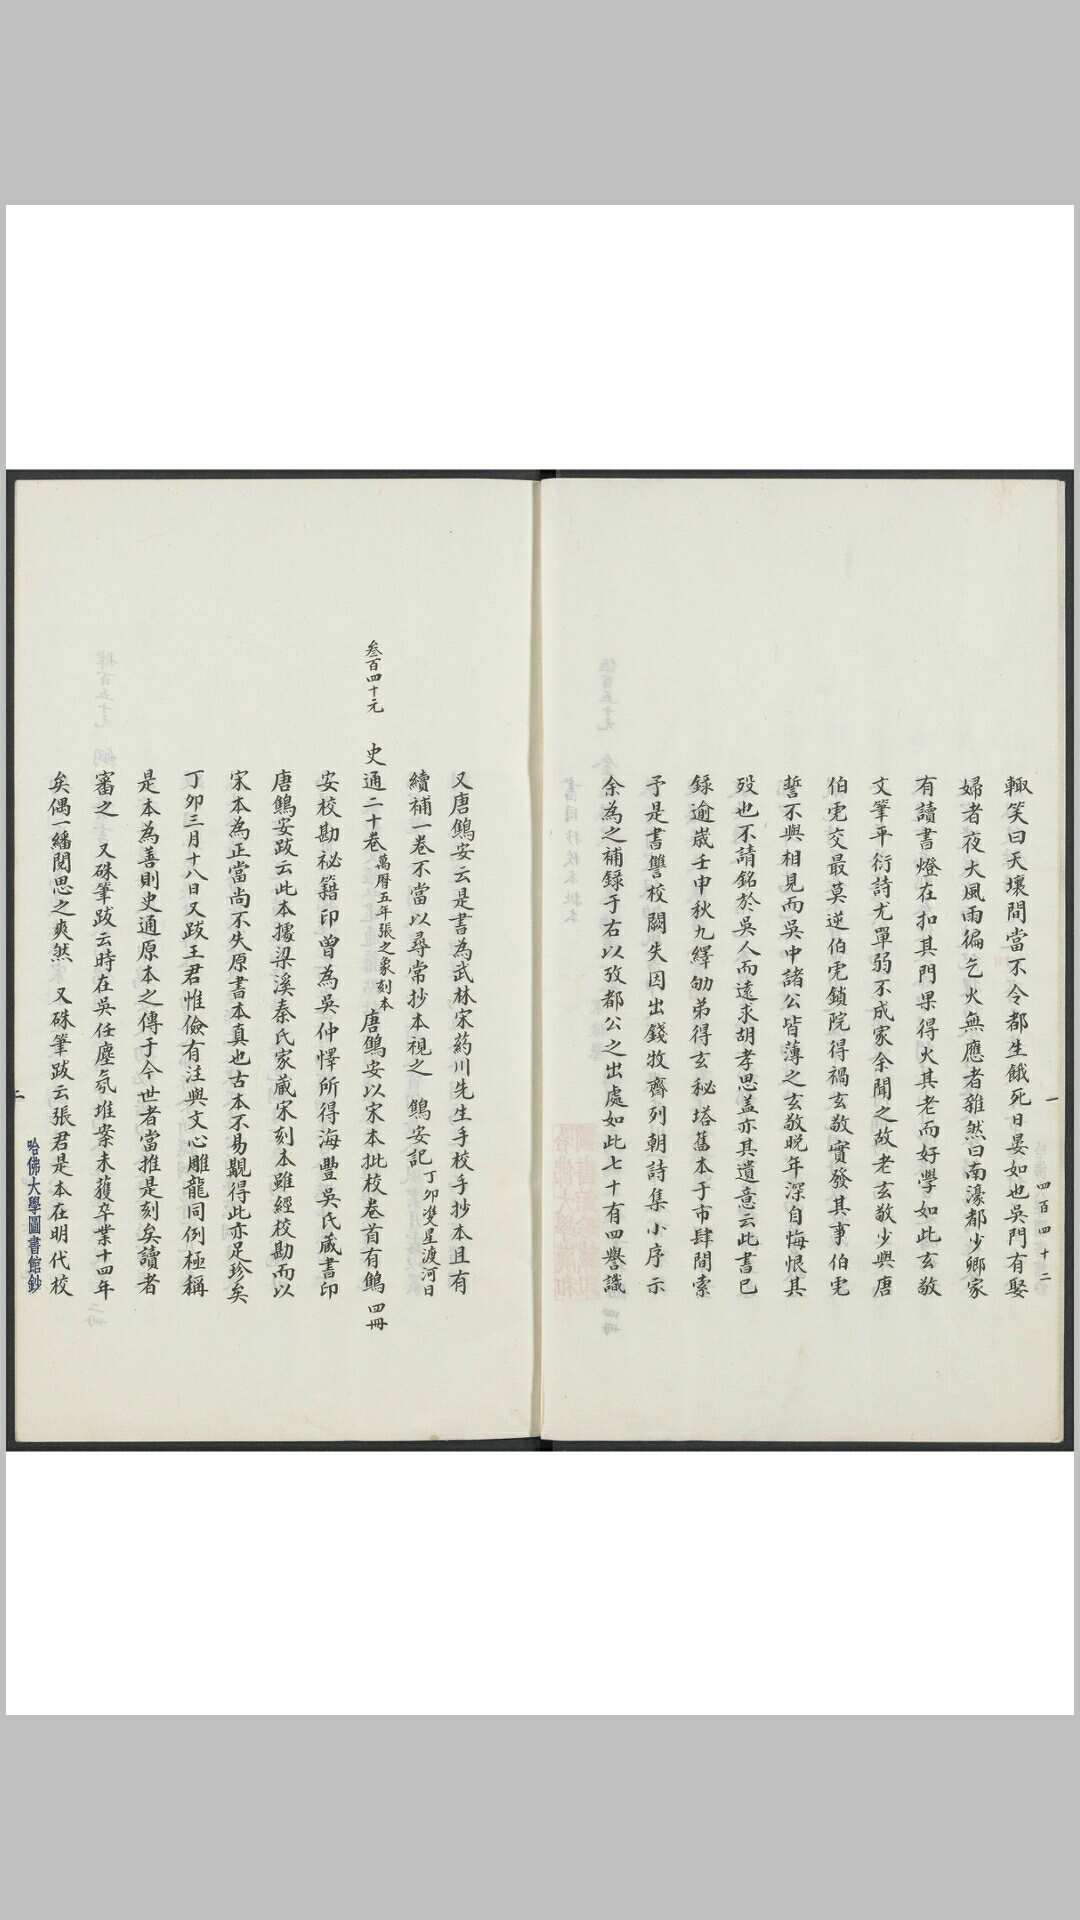 一
四百四十二
輙笑曰天壤間當不令都生餓死日晏如也吳門有娶
婦者夜大風雨徧乞火無應者雜然曰南濠都少卿家
有讀書燈在扣其門果得火其老而好學如此玄敬
文筆平衍詩尤單弱不成家余聞之故老玄敬少與唐
伯虎交最莫逆伯虎鎖院得禍玄敬實發其事伯虎
誓不與相見而吳中諸公皆薄之玄敬晚年深自悔恨其
歿也不請銘於吳人而遠求胡孝思蓋亦其遺意云此書已
錄逾歲壬申秋九繹劬弟得玄秘塔舊本于市肆間索
予是書讐校闕失因出錢牧齋列朝詩集小序示
余為之補錄于右以攷都公之出處如此七十有四譽識
又唐鷦安云是書為武林宋葯川先生手校手抄本且有
續補一卷不當以尋常抄本視之 鷦安記丁卯雙星渡河日
叁百四十元 史通二十卷萬曆五年張之象刻本 唐鷦安以宋本批校卷首有鷦 四冊
安校勘祕籍印曾為吳仲懌所得海豐吳氏藏書印
唐鷦安跋云此本據梁溪秦氏家藏宋刻本雖經校勘而以
宋本為正當尚不失原書本真也古本不易覯得此亦足珍矣
丁卯三月十八日又跋王君惟儉有注與文心雕龍同例極稱
是本為善則史通原本之傳于今世者當推是刻矣讀者
審之 又硃筆跋云時在吳任塵氛堆案未獲卒業十四年
矣偶一繙閱思之爽然 又硃筆跋云張君是本在明代校
二
哈佛大學圖書館鈔